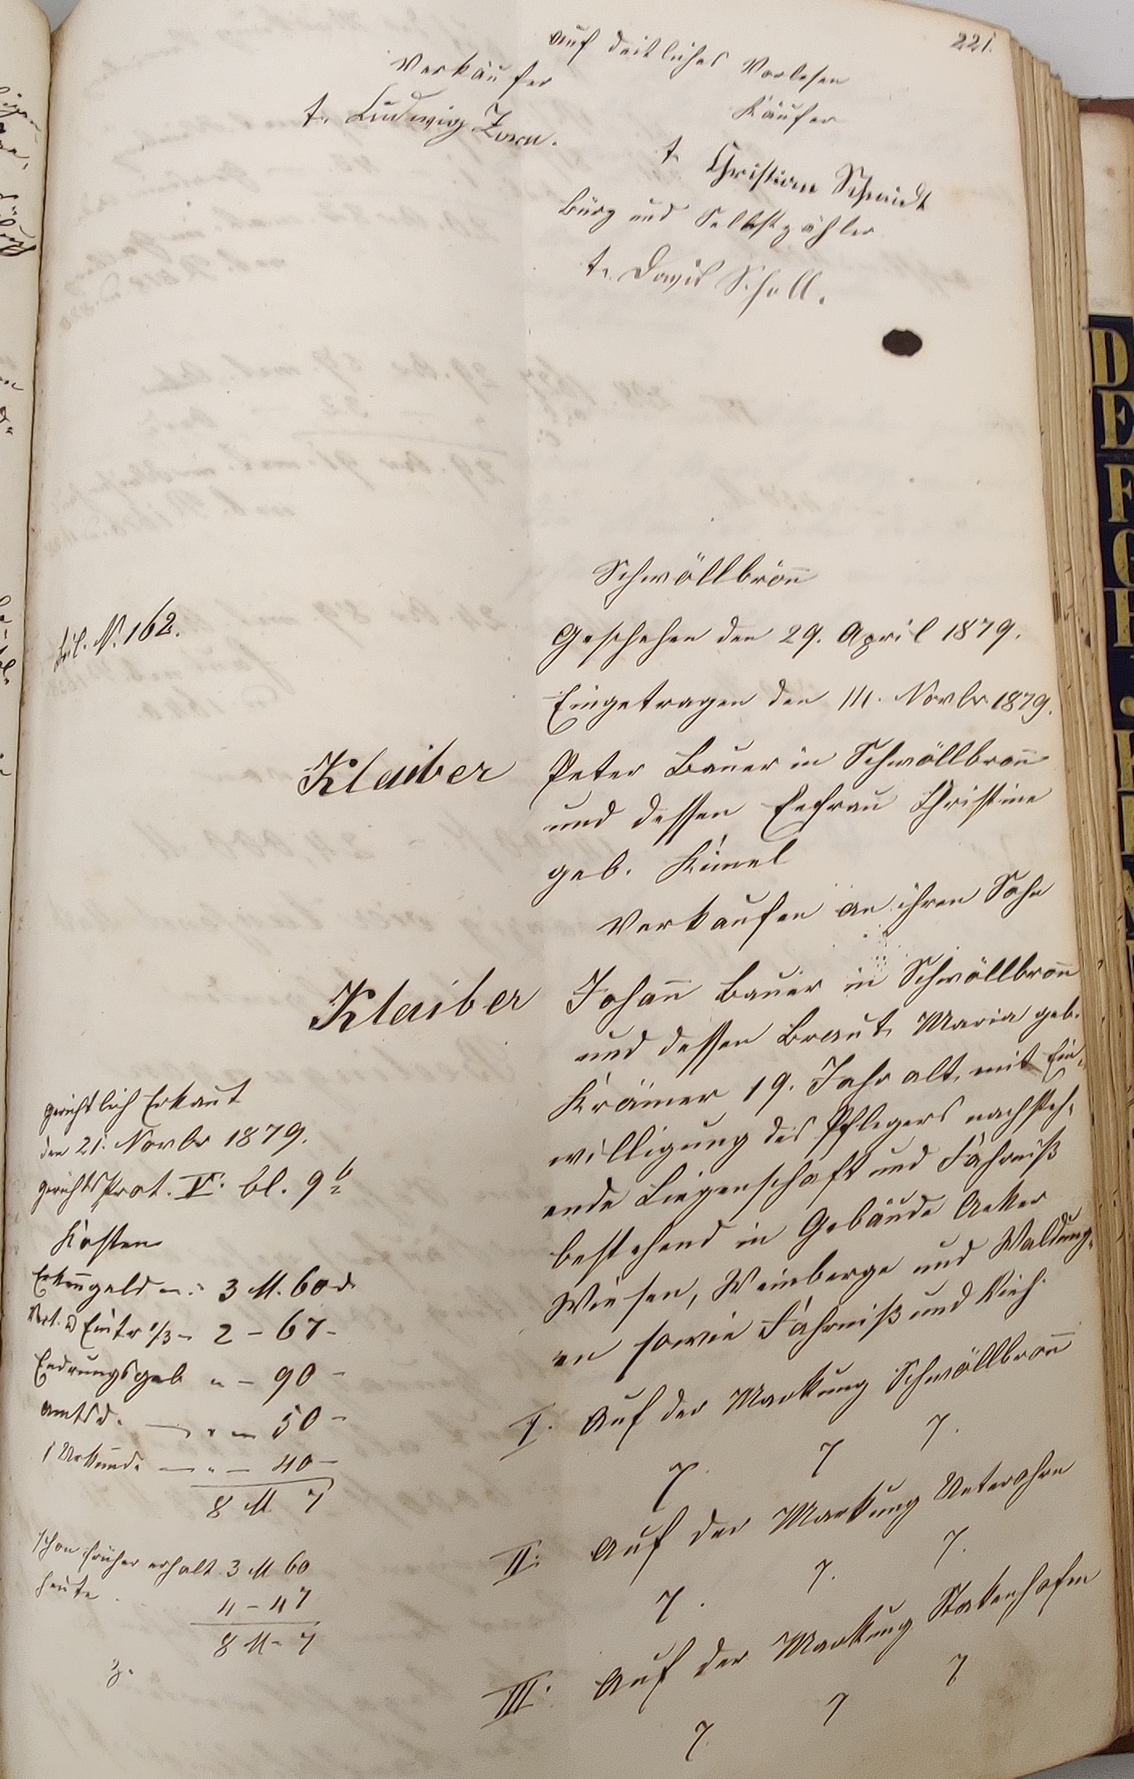 221.
auf deitliches Vorlesen
Verkäufer
Käufer
t. Ludwig Zorn.
t. Christian Schmidt
Bürg und Selbstzahler
t. David Scholl.
Schwöllbronn
Beil. N. 162.
Geschehen den 29. April 1879.
Eingetragen den 11. Novbr 1879.
Klaiber
Peter Bauer in Schwöllbronn
und dessen Eefrau Christine
geb. Kümel
Verkaufen an ihren Sohn
Klaiber
Johann Bauer in Schwöllbronn
und dessen Braut Maria geb.
Krämer 19. Jahr alt, mit Ein-
willigung des Pflegers nachsteh-
ende Liegenschaft und Fahrniß
bestehend in Gebäude Aeker
Wiesen, Weinberge und Waldung-
en sowie Fahrniß und Vieh
gerichtlich Erkant
den 21. Novbr 1879.
gerichtsProt. V. bl. 9 b
Kosten
Erkenngeld - 3 M. 60 d
Eintr 1/3 - 2 - 67 -
- 90 -
amtsd. - 50 -
1 Urkunde - 40 -
8 M 7
schon früher erhalt. 3 M 60
heute
4 - 47
8 M - 7
z.
I. Auf der Markung Schwöllbronn
7. 7 7.
II. Auf der Markung Unterohrn
7. 7. 7.
III. Auf der Markung Stakenhofen
7. 7 7